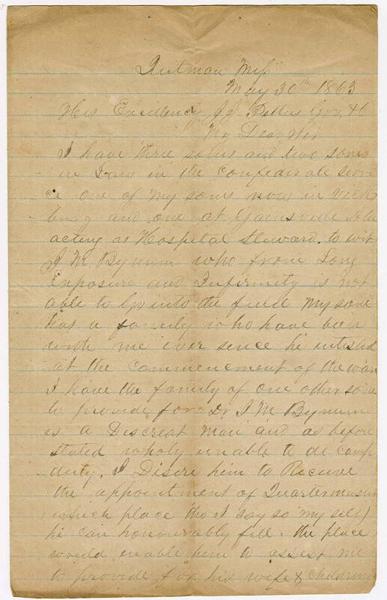 Quitman Miss
May 30th 1863
His Excellency J J Pettus Gov, &c
My Dear Sir
I have three sons and two sons
in Laws in the confederate servi
ce one of my sons now in Vicks
burg and one at Gainsville Ala
acting as Hospital Steward. to wit
J M Bynum who from Long
Exposure and Infirmity is not
able to Go into the field My sone
has a family who have been
with me ever since he inlisted
at the commencement of the war
I have the family of one other sone
to provide for Dr J M Bynum
is a Discreet Man and as before
stated wholy unable to do camp
duty. I Disire him to Receive
the appointment of Quartermaster
which place tho I say so my self
he can honourably fill. the place
would enable him to assist me
to provide for his wife & children